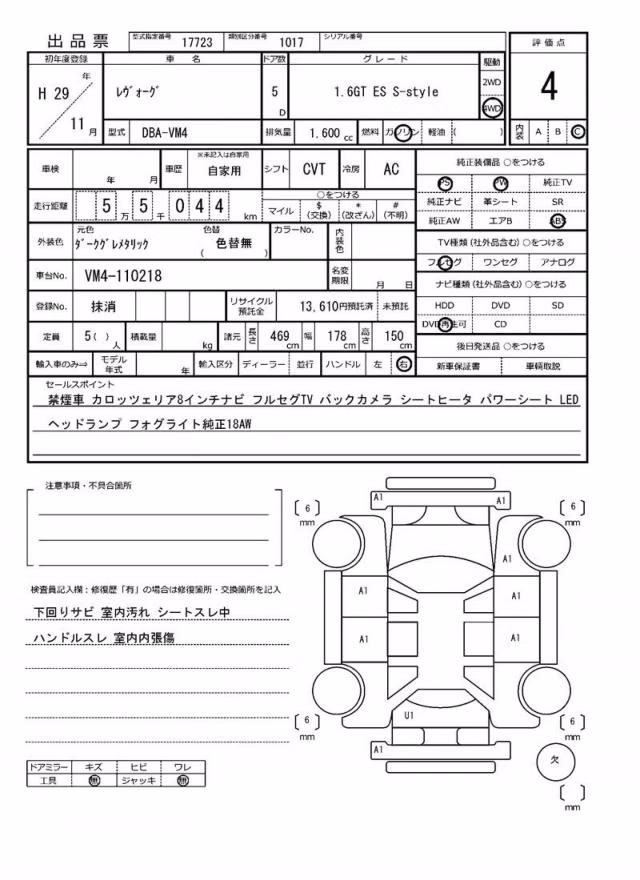 出品票 型式指定番号 17723 類別区分番号 1017 シリアル番号
評価点
4
内装 A B C
初年度登録 車名 ドア数 グレード 駆動
H 29 年 ﾚｳﾞｫｰｸﾞ 5 D 1.6GT ES S-style 2WD
4WD
11 月 型式 DBA-VM4 排気量 1,600 cc 燃料 ガソリン 軽油 ( )
車検 年 月 車歴 ※未記入は自家用 自家用 シフト CVT 冷房 AC
純正装備品 ○をつける
PS PW 純正TV
純正ナビ 革シート SR
純正AW エアB ABS
走行距離 5 万 5 千 0 4 4 km
○をつける
マイル $ (交換) * (改ざん) # (不明)
TV種類 (社外品含む) ○をつける
フルセグ ワンセグ アナログ
外装色 元色 ﾀﾞｰｸｸﾞﾚﾒﾀﾘｯｸ 色替 ( 色替無 ) カラーNo. 内装色
車台No. VM4-110218 名変期限 月 日
ナビ種類 (社外品含む) ○をつける
HDD DVD SD
DVD再生可 CD
登録No. 抹消 リサイクル預託金 13,610円預託済 未預託
定員 5( ) 人 積載量 kg 諸元 長さ 469 cm 幅 178 cm 高さ 150 cm
後日発送品 ○をつける
新車保証書 車輌取説
輸入車のみ⇒ モデル年式 年 輸入区分 ディーラー 並行 ハンドル 左 右
セールスポイント
禁煙車 カロッツェリア8インチナビ フルセグTV バックカメラ シートヒータ パワーシート LED
ヘッドランプ フォグライト純正18AW
注意事項・不具合箇所
検査員記入欄：修復歴「有」の場合は修復箇所・交換箇所を記入
下回りサビ 室内汚れ シートスレ中
ハンドルスレ 室内内張傷
ドアミラー キズ ヒビ ワレ
工具 無 ジャッキ 無
A1 A1
6 mm 6 mm
A1
A1 A1
A1 A1
U1
6 mm 6 mm
A1
欠
mm